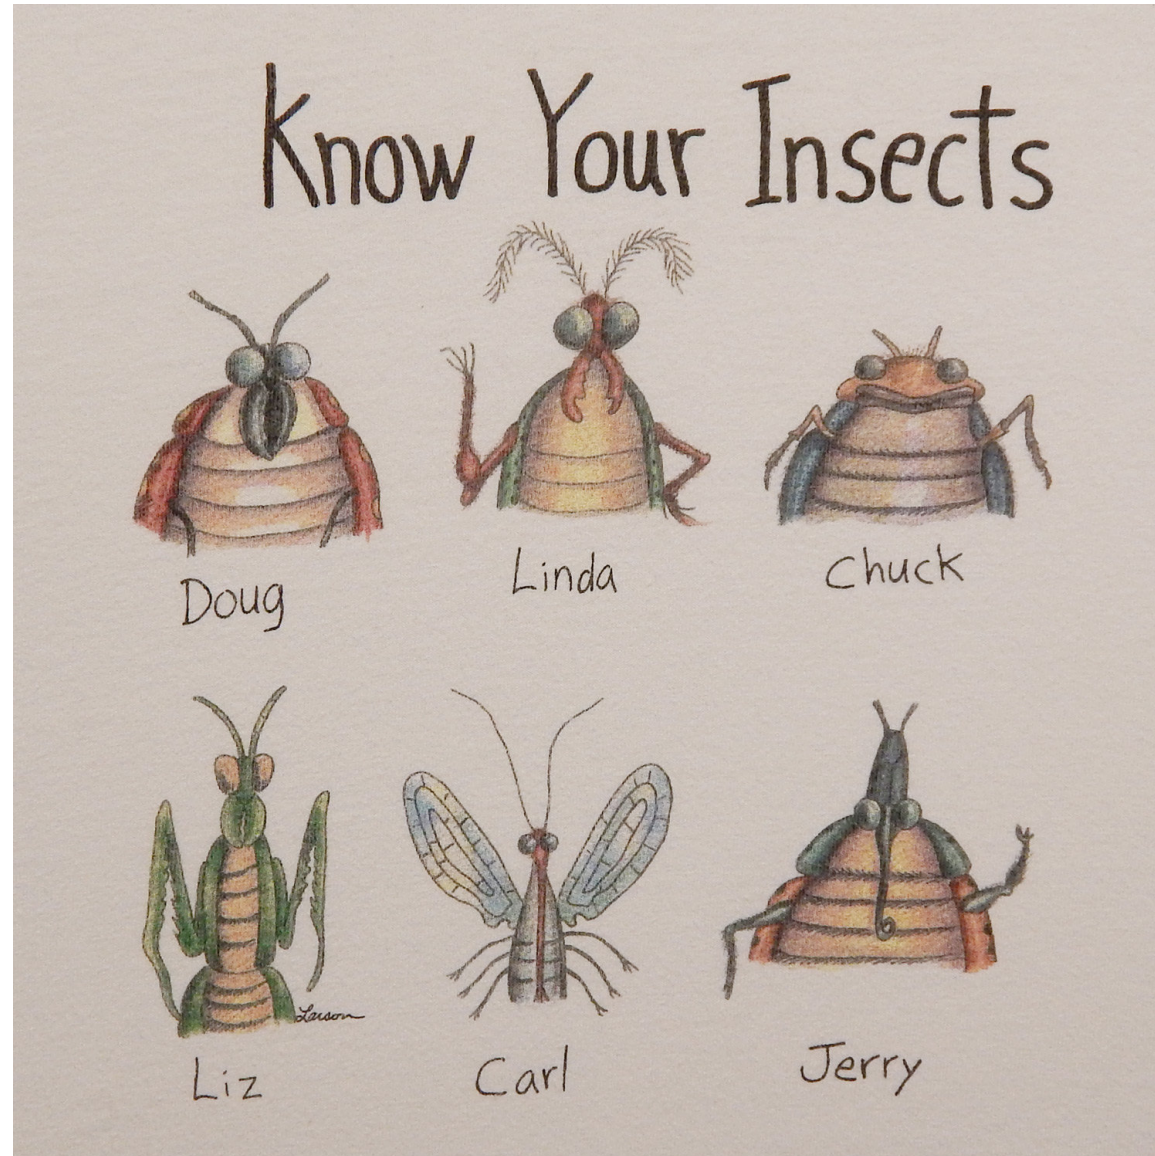 Know Your Insects
Doug
Linda
Chuck
Larson
Liz
Carl
Jerry